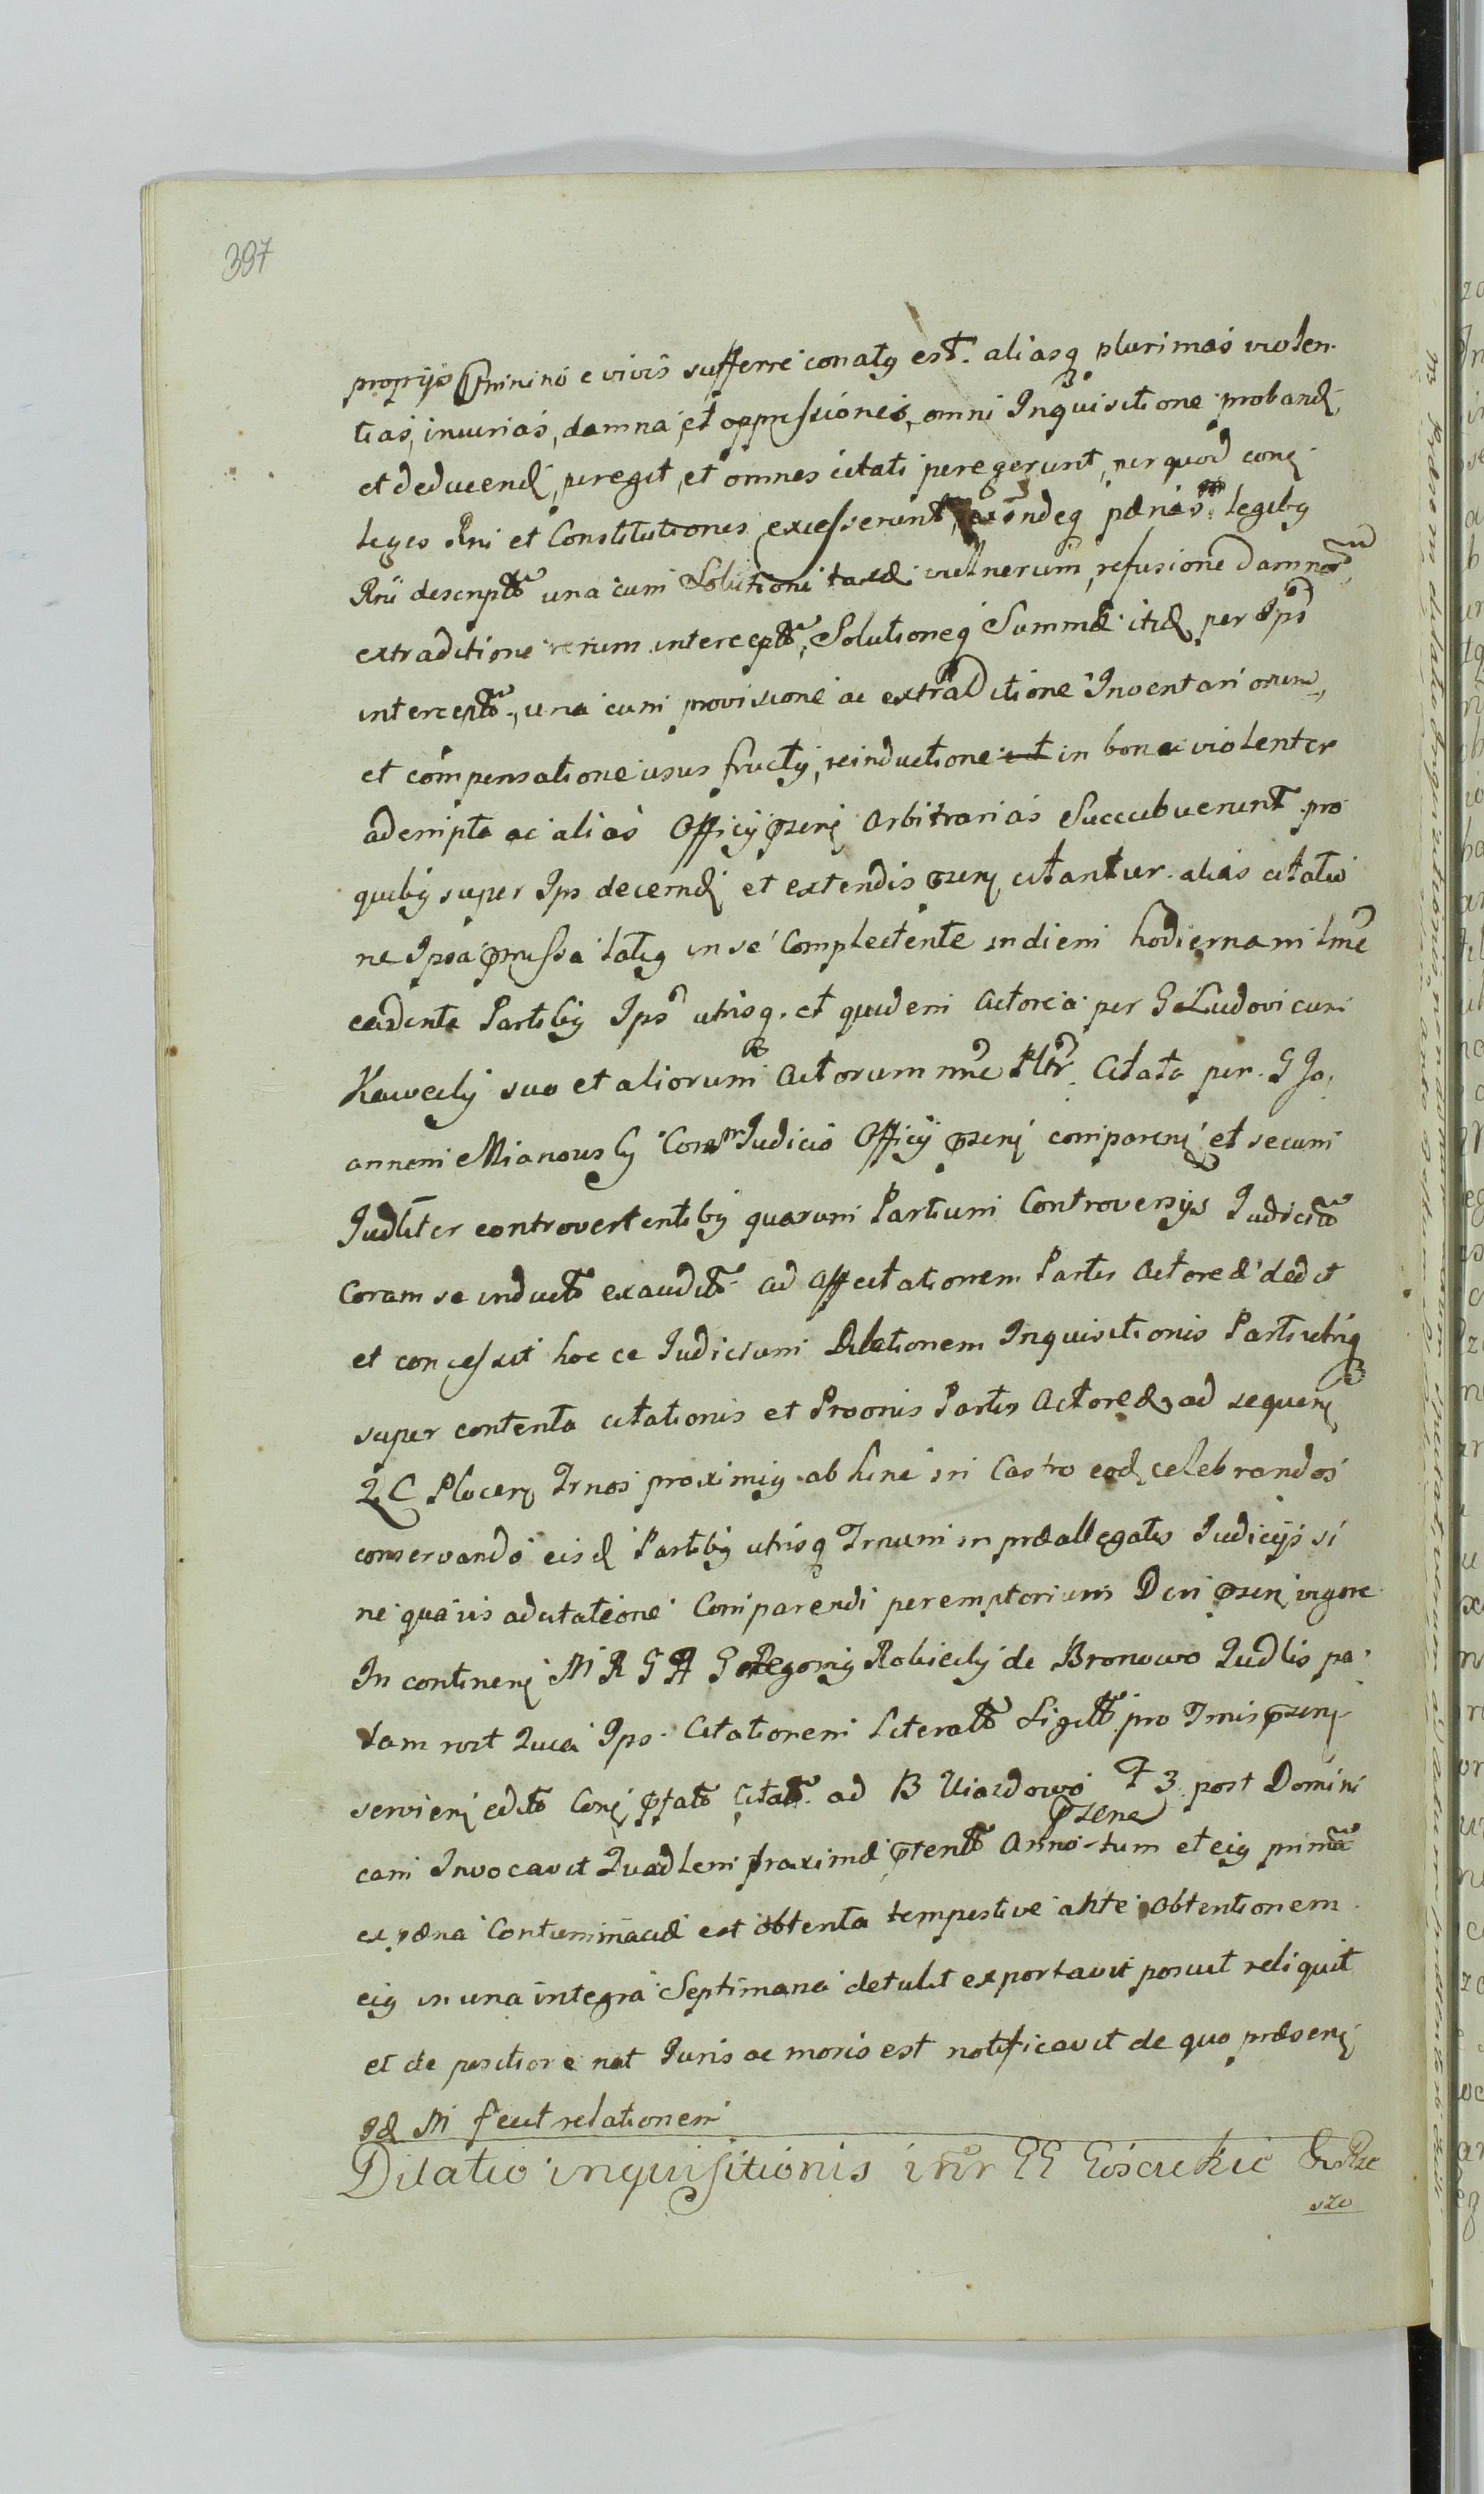 397
proprijs ōmnino e vivis sufferre conatq est. aliasq plurimas violen-
tias, iniurias, damna et oppressiones, omni Inquisitione proband,
et deducend, peregit, et omnes citati peregerunt, per quod conq
leges Rni et Constitutiones excesserunt, exindeq pænas legibq
Rni descriptō una cum Solutione taxæ vulnerum, refusione Damnor,
extraditione rerum interceptō, Solutioneq Summæ itid per Ips
interceptō, una cum provisione ac extraditione Inventariorum,
et compensatione usus fructq, reinductione in bona violenter
adempta ac alias Officij pszenq arbitrarias Succubuerunt pro
quibq super Ips decernd et extendis pszenq citantur. alias citatio
ne Ipsa pmissa latq in se Complectente in diem hodiernam lmē
cadente Partibq Ips utrisq. et quidem Actorea per G Ludovicum
Kawecky suo et aliorum Actorum nnē Pltr. Citata per. G Jo,
annem Mianowsky Coram Iudicio Officij pszenq comparenq et secum
Iudliter controvertentibq quarum Partium Controversijs Iudiciō
Coram se inductō exauditō ad affectationem Partis Actoreæ dedit
et concessit hoc ce Iudicium Dilationem Inquisitionis Parti utriq
super contenta citationis et Proonis Partis Actoreæ, ad sequenq
Q C Plocenq Trnos proximiq ab hinc in Castro eod, celebrandos
conservando eisd Partibq utrisq Trnum in præallegatis Iudicijs si
ne quavis adcitatione Comparendi peremptorium Dcri pszenq vigore
In continenq M R G R Gregorig Rokicky de Bronowo Iudlis pa-
tam rost Quia Ips. Citationem Literatō Sigiltō pro Trnis pszenq
servienq editō Conq pfatō Citatō. ad B Uiazdowo F 3 post Domini
pszene
cam Invocavit Quadlem proxime ptentō Anno-tum et eiq primā
ex pæna Contumaciæ est obtenta tempestive ante obtentionem
eiq in una integra Septimana detulit exportavit posuit reliquit
et de positione nat Iuris ac moris est notificavit de quo præsenq
Id M fecit relationem
Dilatio inquisitionis intr GG Gościckie &
szo